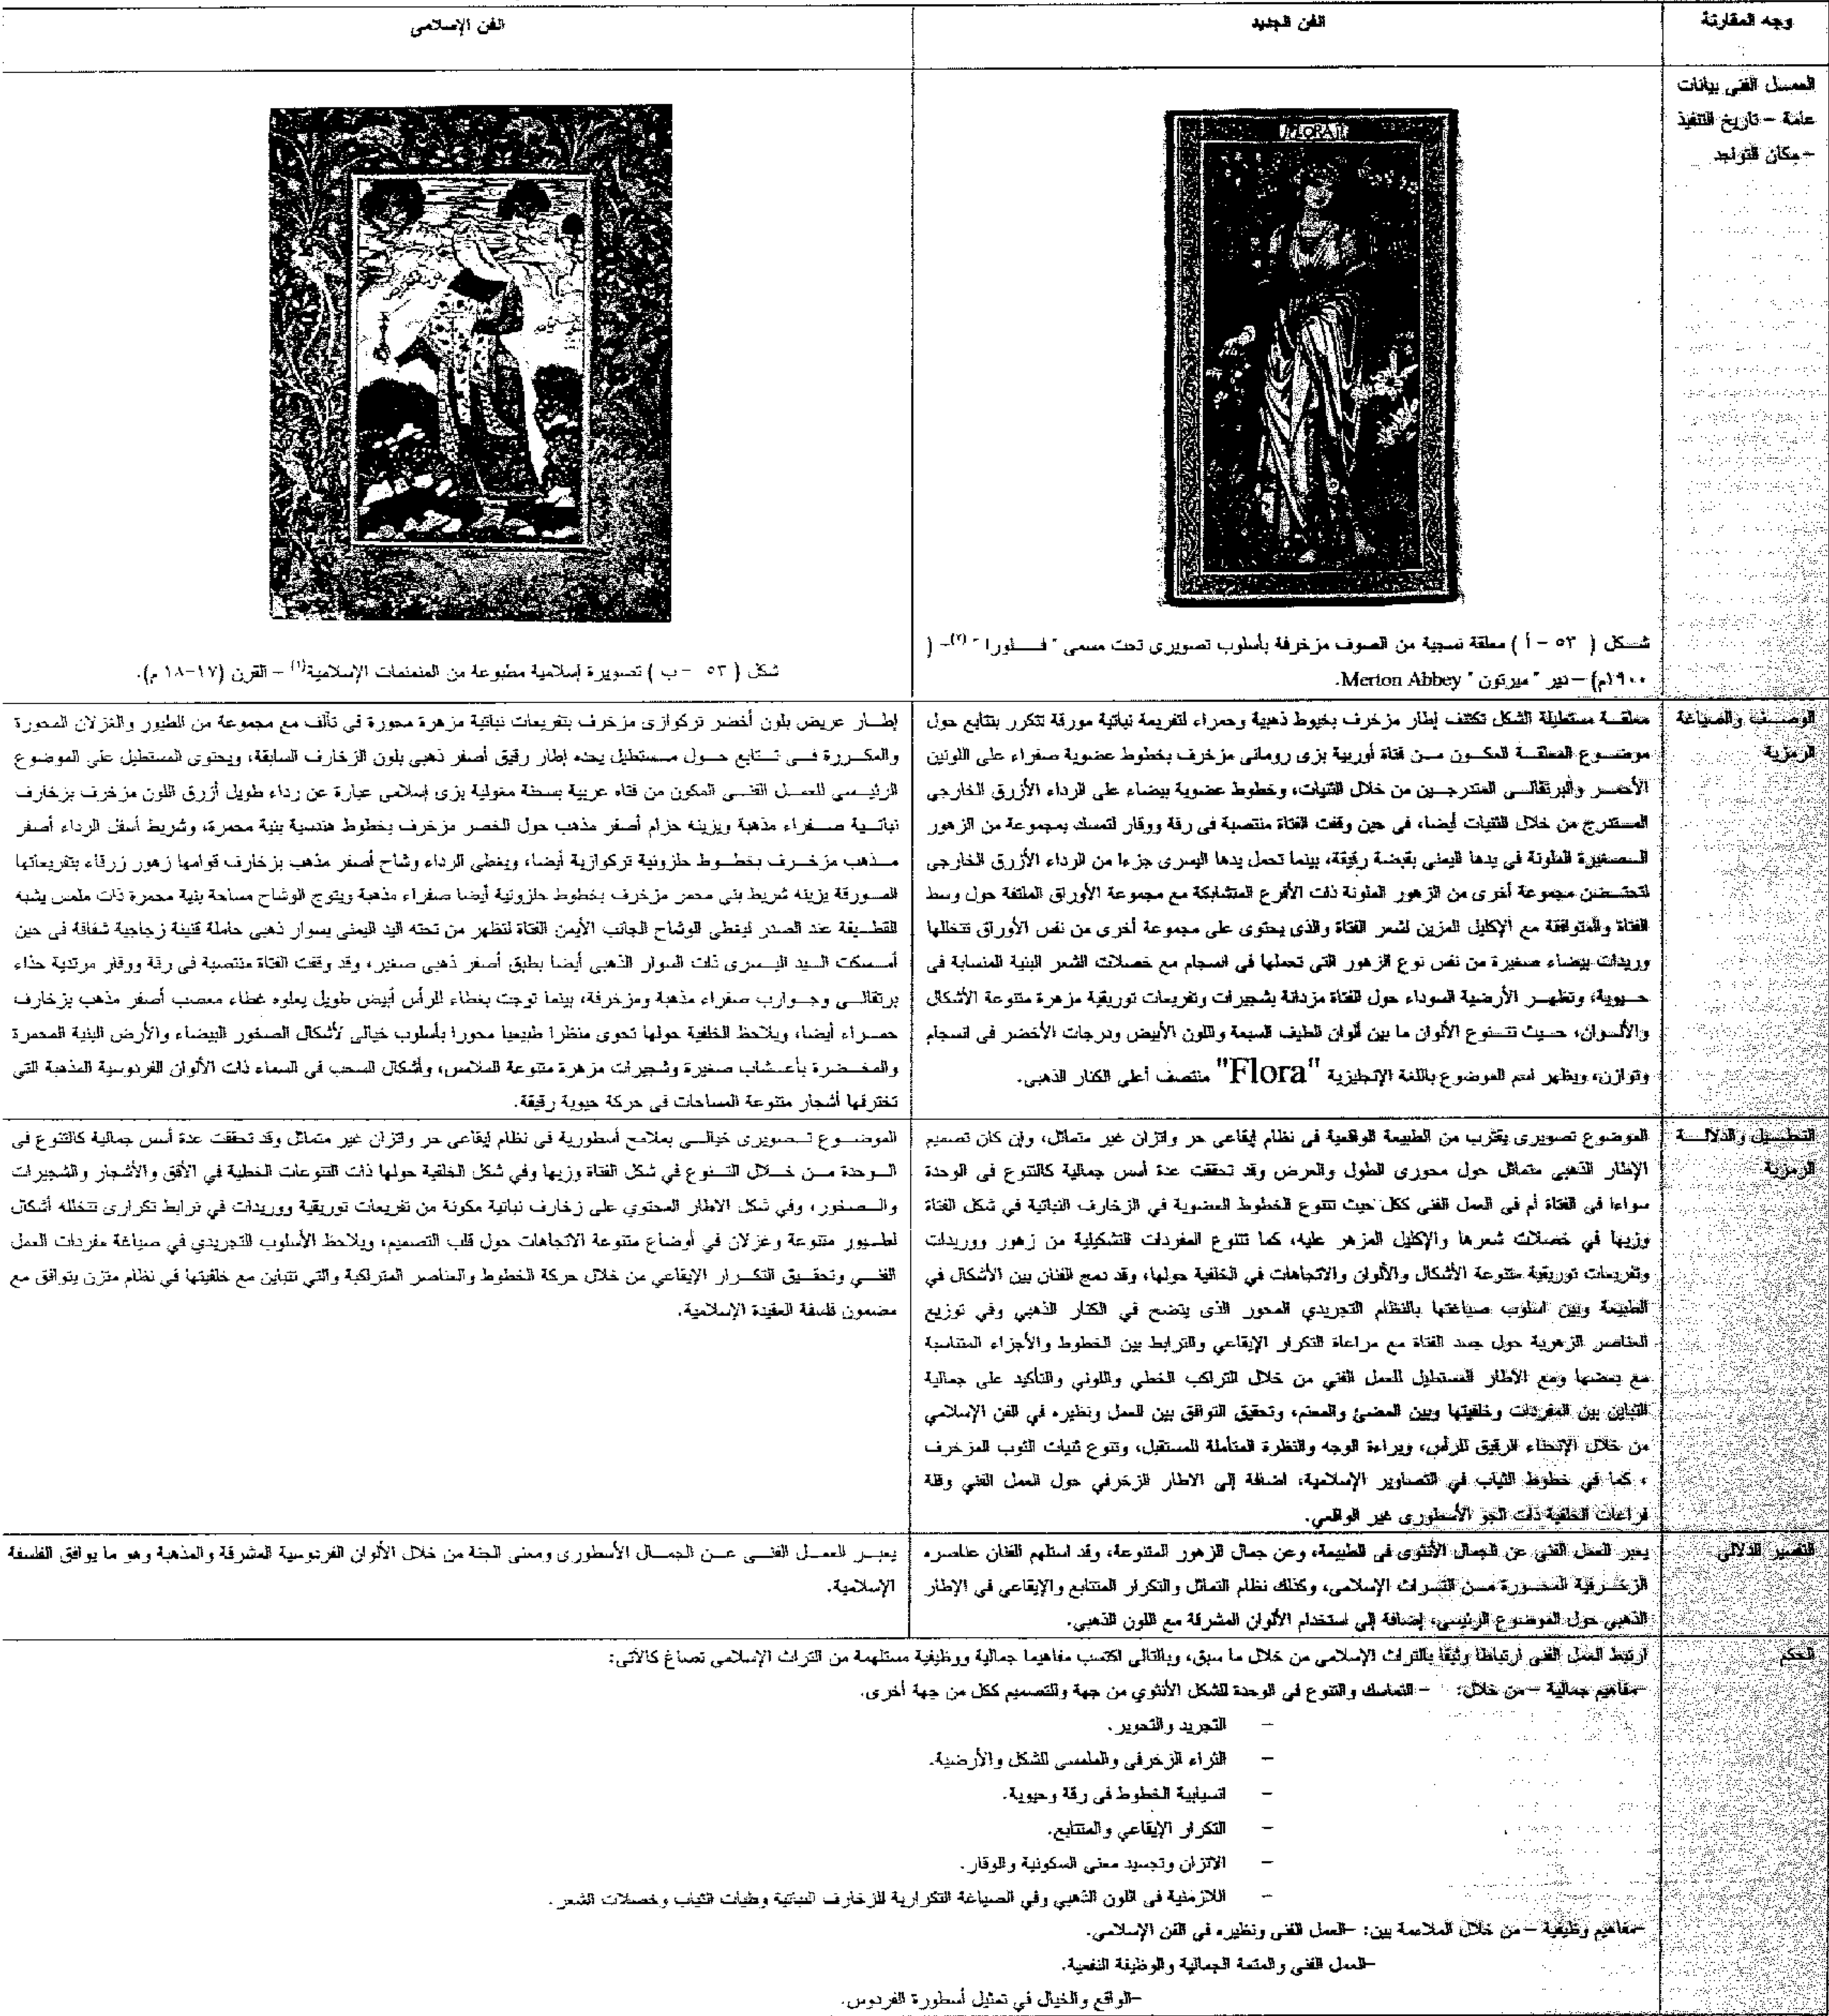 وجه المقارنة
الفن الجديد
الفن الإسلامى
العمـل الفنى بيانات
عامة – تاريخ التنفيذ
– مكان التواجد
FLORA
شـكل ( ٥٣ – أ ) معلقة نسجية من الصوف مزخرفة بأسلوب تصويرى تحت مسمى " فــلورا " (٢)– (
١٩٠٠م) – دير " ميرتون " Merton Abbey.
شكل ( ٥٣ – ب ) تصويرة إسلامية مطبوعة من المنمنمات الإسلامية(١) – القرن (١٧–١٨ م).
الوصـف والصياغة
الرمزية
معلقـة مستطيلة الشكل تكتنف إطار مزخرف بخيوط ذهبية وحمراء لتفريعة نباتية مورقة تتكرر بتتابع حول
موضـوع المعلقـة المكـون مـن فتاة أوربية بزى رومانى مزخرف بخطوط عضوية صفراء على اللونين
الأحمـر والبرتقالـى المتدرجـين من خلال الثنيات، وخطوط عضوية بيضاء على الرداء الأزرق الخارجي
المـتدرج من خلال الثنيات أيضا، فى حين وقفت الفتاة منتصبة فى رقة ووقار لتمسك بمجموعة من الزهور
الـصغيرة الملونة فى يدها اليمنى بقبضة رقيقة، بينما تحمل يدها اليسرى جزءا من الرداء الأزرق الخارجي
لتحتـضن مجموعة أخرى من الزهور الملونة ذات الأفرع المتشابكة مع مجموعة الأوراق الملتفة حول وسط
الفتاة والمتوافقة مع الإكليل المزين لشعر الفتاة والذى يحتوى على مجموعة أخرى من نفس الأوراق تتخللها
وريدات بيضاء صغيرة من نفس نوع الزهور التى تحملها فى انسجام مع خصلات الشعر البنية المنسابة فى
حـيوية، وتظهـر الأرضية السوداء حول الفتاة مزدانة بشجيرات وتفريعات توريقية مزهرة متنوعة الأشكال
والألـوان، حـيث تتـنوع الألوان ما بين ألوان الطيف السبعة واللون الأبيض ودرجات الأخضر فى انسجام
وتوازن، ويظهر اسم الموضوع باللغة الإنجليزية "Flora" منتصف أعلى الكنار الذهبى.
إطـار عريض بلون أخضر تركوازى مزخرف بتفريعات نباتية مزهرة محورة في تآلف مع مجموعة من الطيور والغزلان المحورة
والمكـررة فـى تـتابع حـول مـستطيل يحده إطار رقيق أصفر ذهبى بلون الزخارف السابقة، ويحتوى المستطيل على الموضوع
الرئيـسى للعمـل الفنـى المكون من فتاه عربية بسحنة مغولية بزى إسلامى عبارة عن رداء طويل أزرق اللون مزخرف بزخارف
نباتـية صـفراء مذهبة ويزينه حزام أصفر مذهب حول الخصر مزخرف بخطوط هندسية بنية محمرة، وشريط أسفل الرداء أصفر
مـذهب مزخـرف بخطـوط حلزونية تركوازية أيضا، ويغطى الرداء وشاح أصفر مذهب بزخارف قوامها زهور زرقاء بتفريعاتها
المـورقة يزينه شريط بنى محمر مزخرف بخطوط حلزونية أيضا صفراء مذهبة ويتوج الوشاح مساحة بنية محمرة ذات ملمس يشبه
القطـيفة عند الصدر ليغطى الوشاح الجانب الأيمن الفتاة لتظهر من تحته اليد اليمنى بسوار ذهبى حاملة قنينة زجاجية شفافة فى حين
أمـسكت الـيد اليـسرى ذات السوار الذهبى أيضا بطبق أصفر ذهبى صغير، وقد وقفت الفتاة منتصبة فى رقة ووقار مرتدية حذاء
برتقالـى وجـوارب صفراء مذهبة ومزخرفة، بينما توجت بغطاء للرأس أبيض طويل يعلوه غطاء معصب أصفر مذهب بزخارف
حمـراء أيضا، ويلاحظ الخلفية حولها تحوى منظرا طبيعيا محورا بأسلوب خيالى لأشكال الصخور البيضاء والأرض البنية المحمرة
والمخـضرة بأعـشاب صغيرة وشجيرات مزهرة متنوعة الملامس، وأشكال السحب فى السماء ذات الألوان الفردوسية المذهبة التى
تخترقها أشجار متنوعة المساحات فى حركة حيوية رقيقة.
التحلـيل والدلالـة
الرمزية
الموضوع تصويرى يقترب من الطبيعة الواقعية فى نظام إيقاعى حر واتزان غير متماثل، وإن كان تصميم
الإطار الذهبي متماثل حول محورى الطول والعرض وقد تحققت عدة أسس جمالية كالتنوع فى الوحدة
سواءا فى الفتاة أم فى العمل الفنى ككل حيث تتنوع الخطوط العضوية في الزخارف النباتية في شكل الفتاة
وزيها في خصلات شعرها والإكليل المزهر عليه، كما تتنوع المفردات التشكيلية من زهور ووريدات
وتفريعات توريقية متنوعة الأشكال والألوان والاتجاهات في الخلفية حولها، وقد دمج الفنان بين الأشكال في
الطبيعة وبين اسلوب صياغتها بالنظام التجريدي المحور الذى يتضح في الكنار الذهبي وفي توزيع
العناصر الزهرية حول جسد الفتاة مع مراعاة التكرار الإيقاعي والترابط بين الخطوط والأجزاء المتناسبة
مع بعضها ومع الاطار المستطيل للعمل الفني من خلال التراكب الخطي واللوني والتأكيد على جمالية
التباين بين المفردات وخلفيتها وبين المضئ والمعتم، وتحقيق التوافق بين العمل ونظيره في الفن الإسلامي
من خلال الإنحناء الرقيق للرأس، وبراءة الوجه والنظرة المتأملة للمستقبل، وتنوع ثنيات الثوب المزخرف
، كما في خطوط الثياب في التصاوير الإسلامية، اضافة إلى الاطار الزخرفي حول العمل الفني وقلة
فراغات الخلفية ذات الجو الأسطورى غير الواقعي.
الموضـوع تـصويرى خيالـى بملامح أسطورية في نظام إيقاعى حر واتزان غير متماثل وقد تحققت عدة أسس جمالية كالتنوع فى
الـوحدة مـن خـلال التـنوع في شكل الفتاة وزيها وفي شكل الخلفية حولها ذات التنوعات الخطية في الأفق والأشجار والشجيرات
والـصخور، وفي شكل الاطار المحتوي على زخارف نباتية مكونة من تفريعات توريقية ووريدات في ترابط تكرارى تتخلله أشكال
لطـيور متنوعة وغزلان في أوضاع متنوعة الاتجاهات حول قلب التصميم، ويلاحظ الأسلوب التجريدي في صياغة مفردات العمل
الفنـي وتحقـيق التكـرار الإيقاعي من خلال حركة الخطوط والعناصر المتراكبة والتي تتباين مع خلفيتها في نظام متزن يتوافق مع
مضمون فلسفة العقيدة الإسلامية.
التفسير الدلالى
يعبر العمل الفني عن الجمال الأنثوى فى الطبيعة، وعن جمال الزهور المتنوعة، وقد استلهم الفنان عناصره
الزخـرفية المحـورة مـن التـراث الإسلامى، وكذلك نظام التماثل والتكرار المتتابع والإيقاعي في الإطار
الذهبي حول الموضوع الرئيسي، إضافة إلى استخدام الألوان المشرقة مع اللون الذهبى.
يعبـر العمـل الفنـى عـن الجمـال الأسطورى ومعنى الجنة من خلال الألوان الفردوسية المشرقة والمذهبة وهو ما يوافق الفلسفة
الإسلامية.
الحكم
ارتبط العمل الفنى ارتباطا وثيقا بالتراث الإسلامى من خلال ما سبق، وبالتالى اكتسب مفاهيما جمالية ووظيفية مستلهمة من التراث الإسلامى تصاغ كالآتى:
–مفاهيم جمالية – من خلال: – التماسك والتنوع فى الوحدة للشكل الأنثوي من جهة وللتصميم ككل من جهة أخرى.
– التجريد والتحوير.
– الثراء الزخرفى والملمسى للشكل والأرضية.
– انسيابية الخطوط فى رقة وحيوية.
– التكرار الإيقاعي والمتتابع.
– الاتزان وتجسيد معنى السكونية والوقار.
– اللازمنية فى اللون الذهبي وفي الصياغة التكرارية للزخارف النباتية وطيات الثياب وخصلات الشعر.
–مفاهيم وظيفية – من خلال الملاءمة بين: –العمل الفنى ونظيره فى الفن الإسلامي.
–العمل الفنى والمتعة الجمالية والوظيفة النفعية.
–الواقع والخيال في تمثيل أسطورة الفردوس.